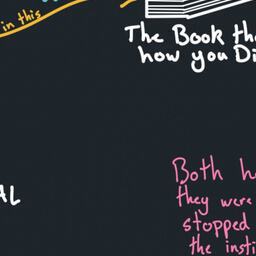 in this
The Book th
how you Di
AL
Both h
they were
stopped
the insti